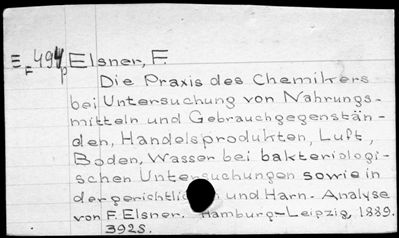 E F 494 p Elsner, F.
Die Praxis des Chemikers
bei Untersuchung von Nahrungs-
mitteln und Gebrauchgegenstän-
den, Handelsprodukten, Luft,
Boden, Wasser bei bakteriologi-
schen Untersuchungen sowie in
der gerichtlichen und Harn-Analyse
von F. Elsner. Hamburg-Leipzig, 1889.
392S.